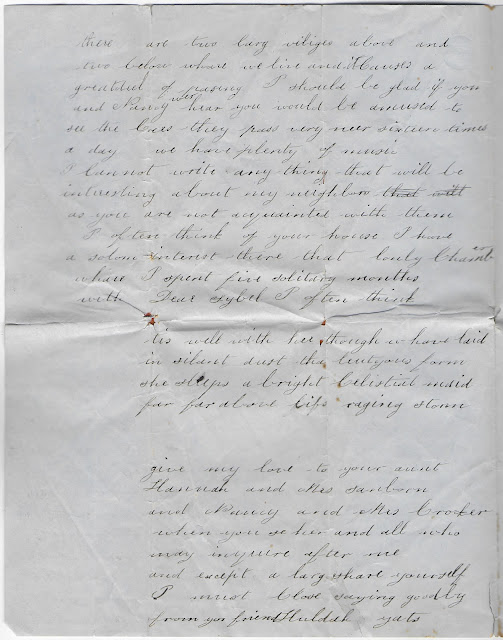 there are two larg viliges above and
two below whare we live and it Causes a
greateful of pasing I should be glad if you
and Nancy war hear you would be amused to
see the Cars they pass very neer sixteen times
a day we have plenty of music
I Cannot write any thing that will be
interesting about my neighbors that will
as you are not acquainted with them
I often think of your house I have
a solom interest there that lonly Chamber
whare I spent five solitary months
with Dear Sybel I often think
tis well with her though w have laid
in silent dust the beutyous form
she sleeps a bright Celestial maid
far far above lifs raging storm
give my love to your aunt
Hannah and Mrs Sanborn
and Nancy and Mrs Crocker
when you se her and all who
may inquire after me
and except a larg share yourself
I must Close saying goodby
from your friend Huldah yats